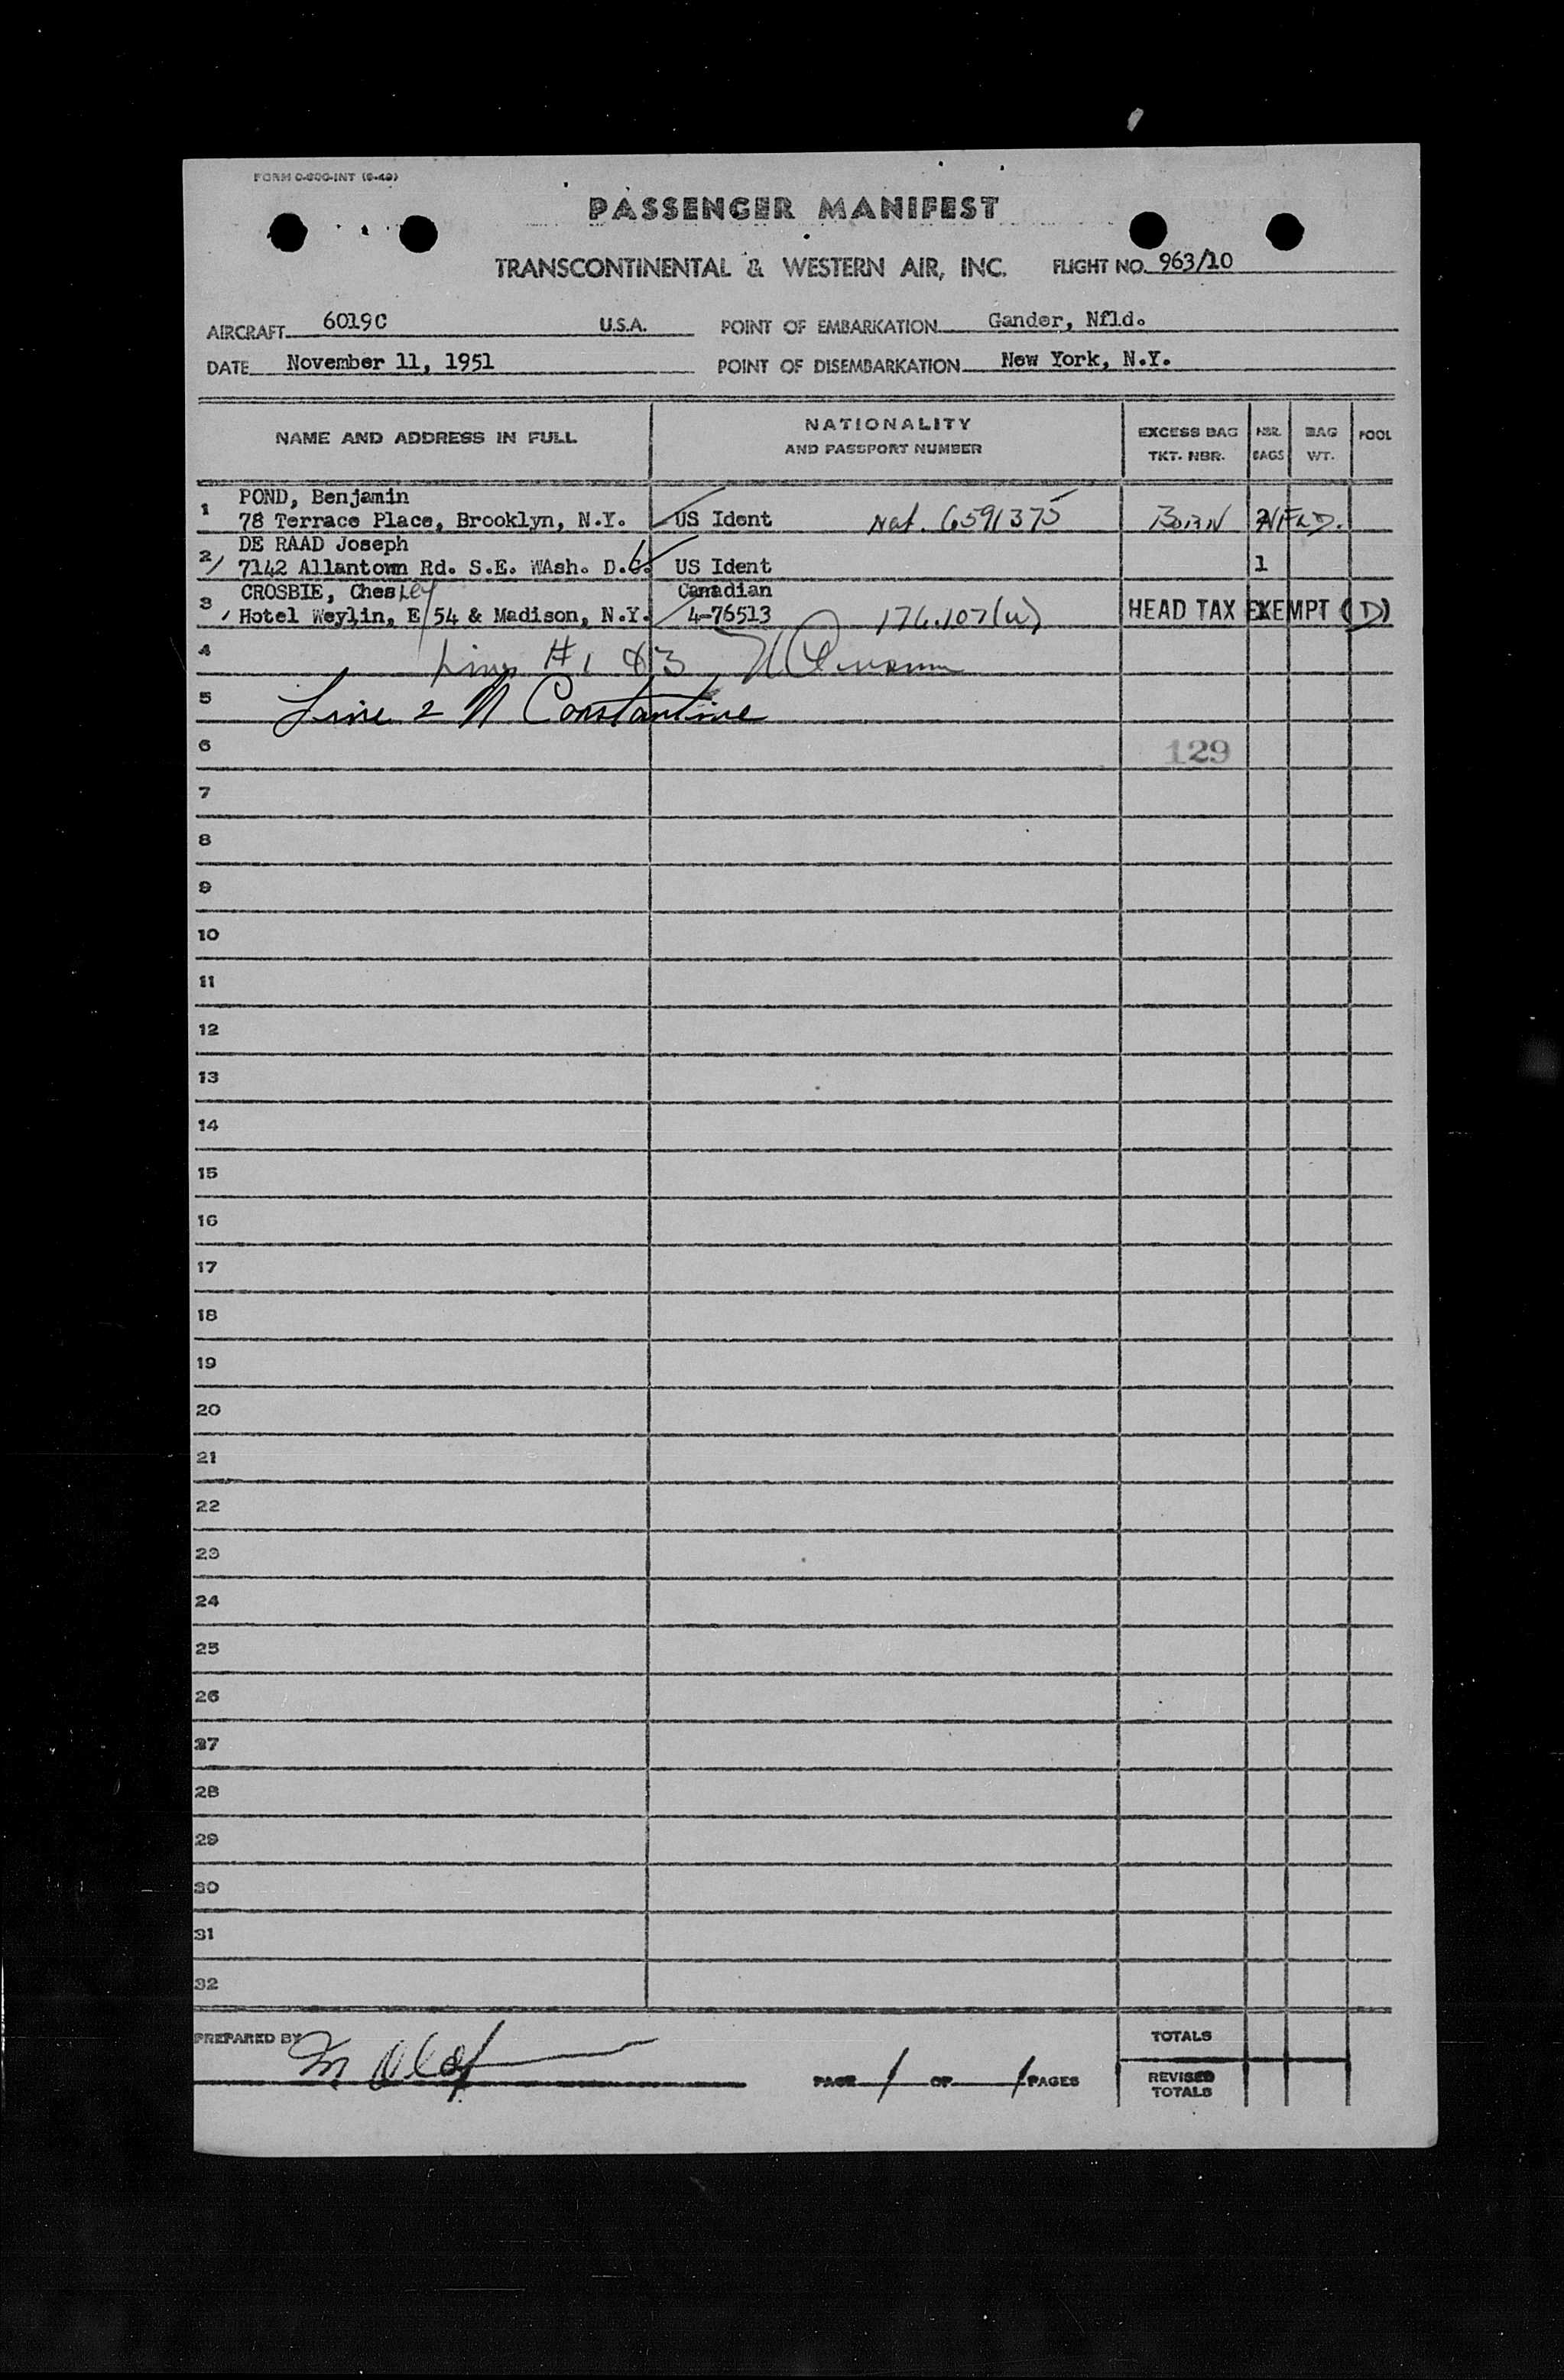 FORM O-800-INT (6-49)
PASSENGER MANIFEST
TRANSCONTINENTAL & WESTERN AIR, INC. FLIGHT NO. 963/10
AIRCRAFT 6019C U.S.A. POINT OF EMBARKATION Gander, Nfld.
DATE November 11, 1951 POINT OF DISEMBARKATION New York, N.Y.
NAME AND ADDRESS IN FULL NATIONALITY AND PASSPORT NUMBER EXCESS BAG TKT. NBR. NBR. BAGS BAG WT. POOL
1 POND, Benjamin
78 Terrace Place, Brooklyn, N.Y. US Ident Nat. 6591375 BORN NFLD.
2 DE RAAD Joseph
7142 Allantown Rd. S.E. WAsh. D.C. US Ident 1
3 CROSBIE, Chesley Canadian
Hotel Weylin, E 54 & Madison, N.Y. 4-76513 176.107(u) HEAD TAX EXEMPT (D)
4 Lines #1 & 3
5 Line 2 N Constantine
6 129
7
8
9
10
11
12
13
14
15
16
17
18
19
20
21
22
23
24
25
26
27
28
29
30
31
32
PREPARED BY TOTALS
PAGE 1 OF 1 PAGES REVISED TOTALS